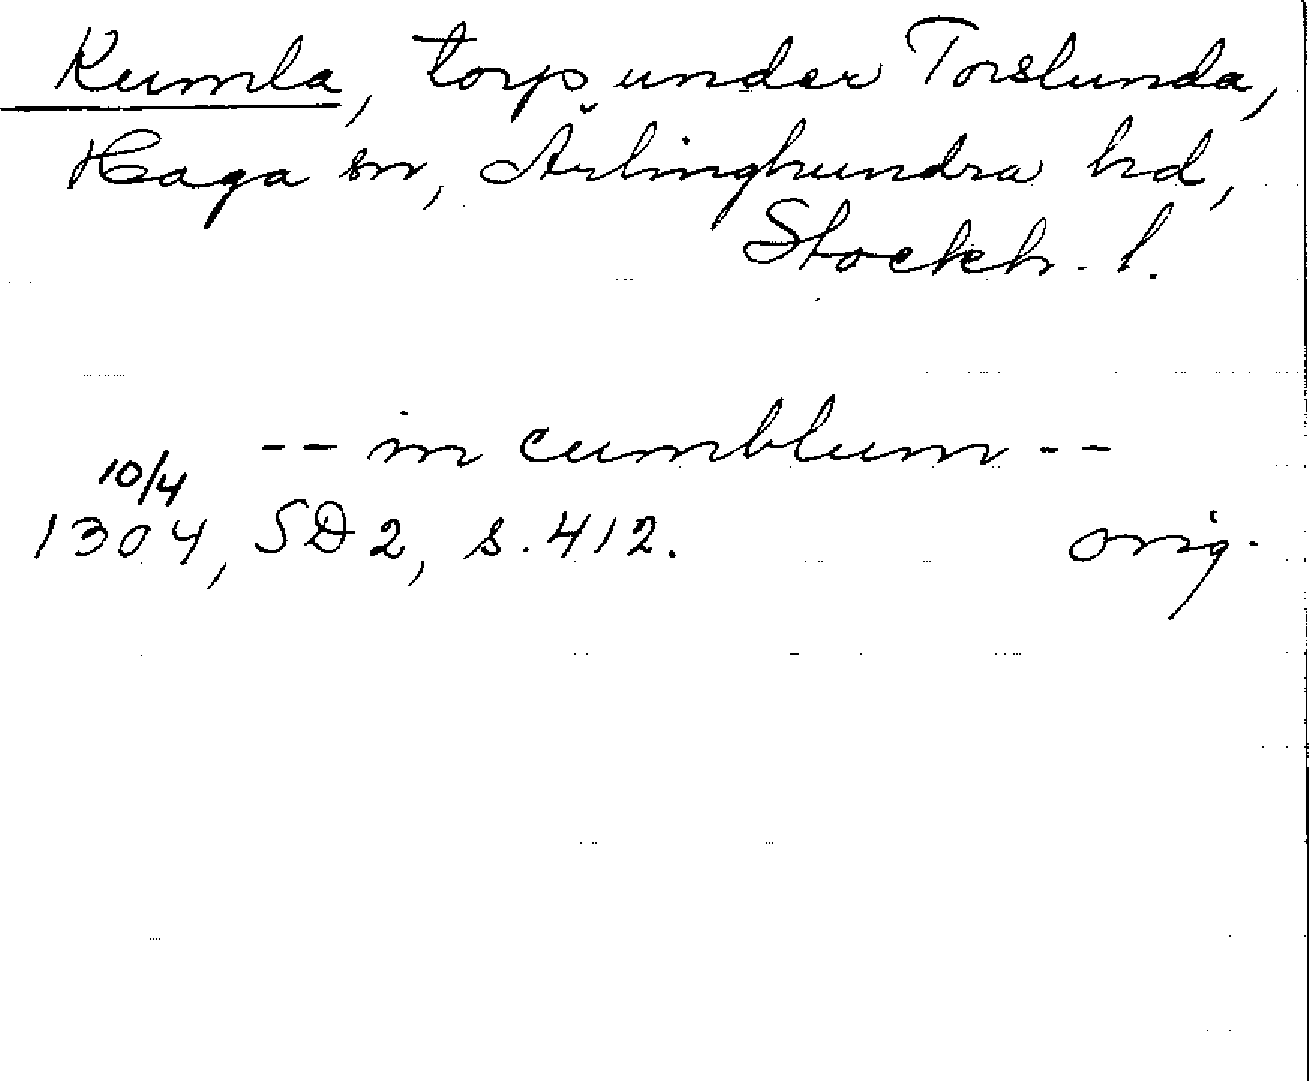 Kumla, torp under Torslunda,
Haga sn, Ärlinghundra hd,
Stockh. l.
-- in cumblum --
10/4
1304, SD 2, s. 412. orig.